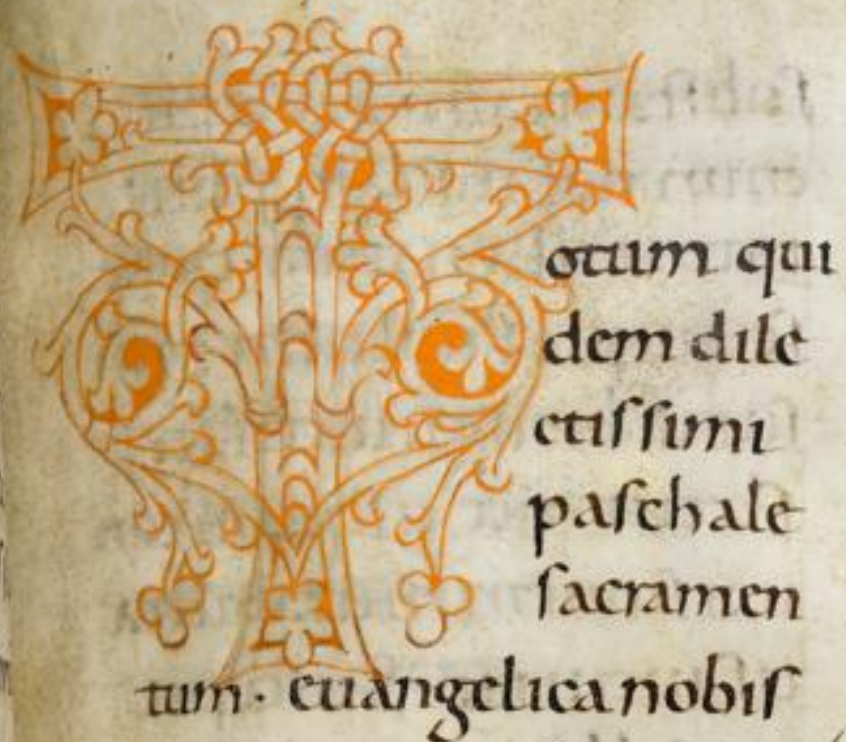 Totum qui
dem dile
ctissimi
paschale
sacramen
tum · euangelica nobis